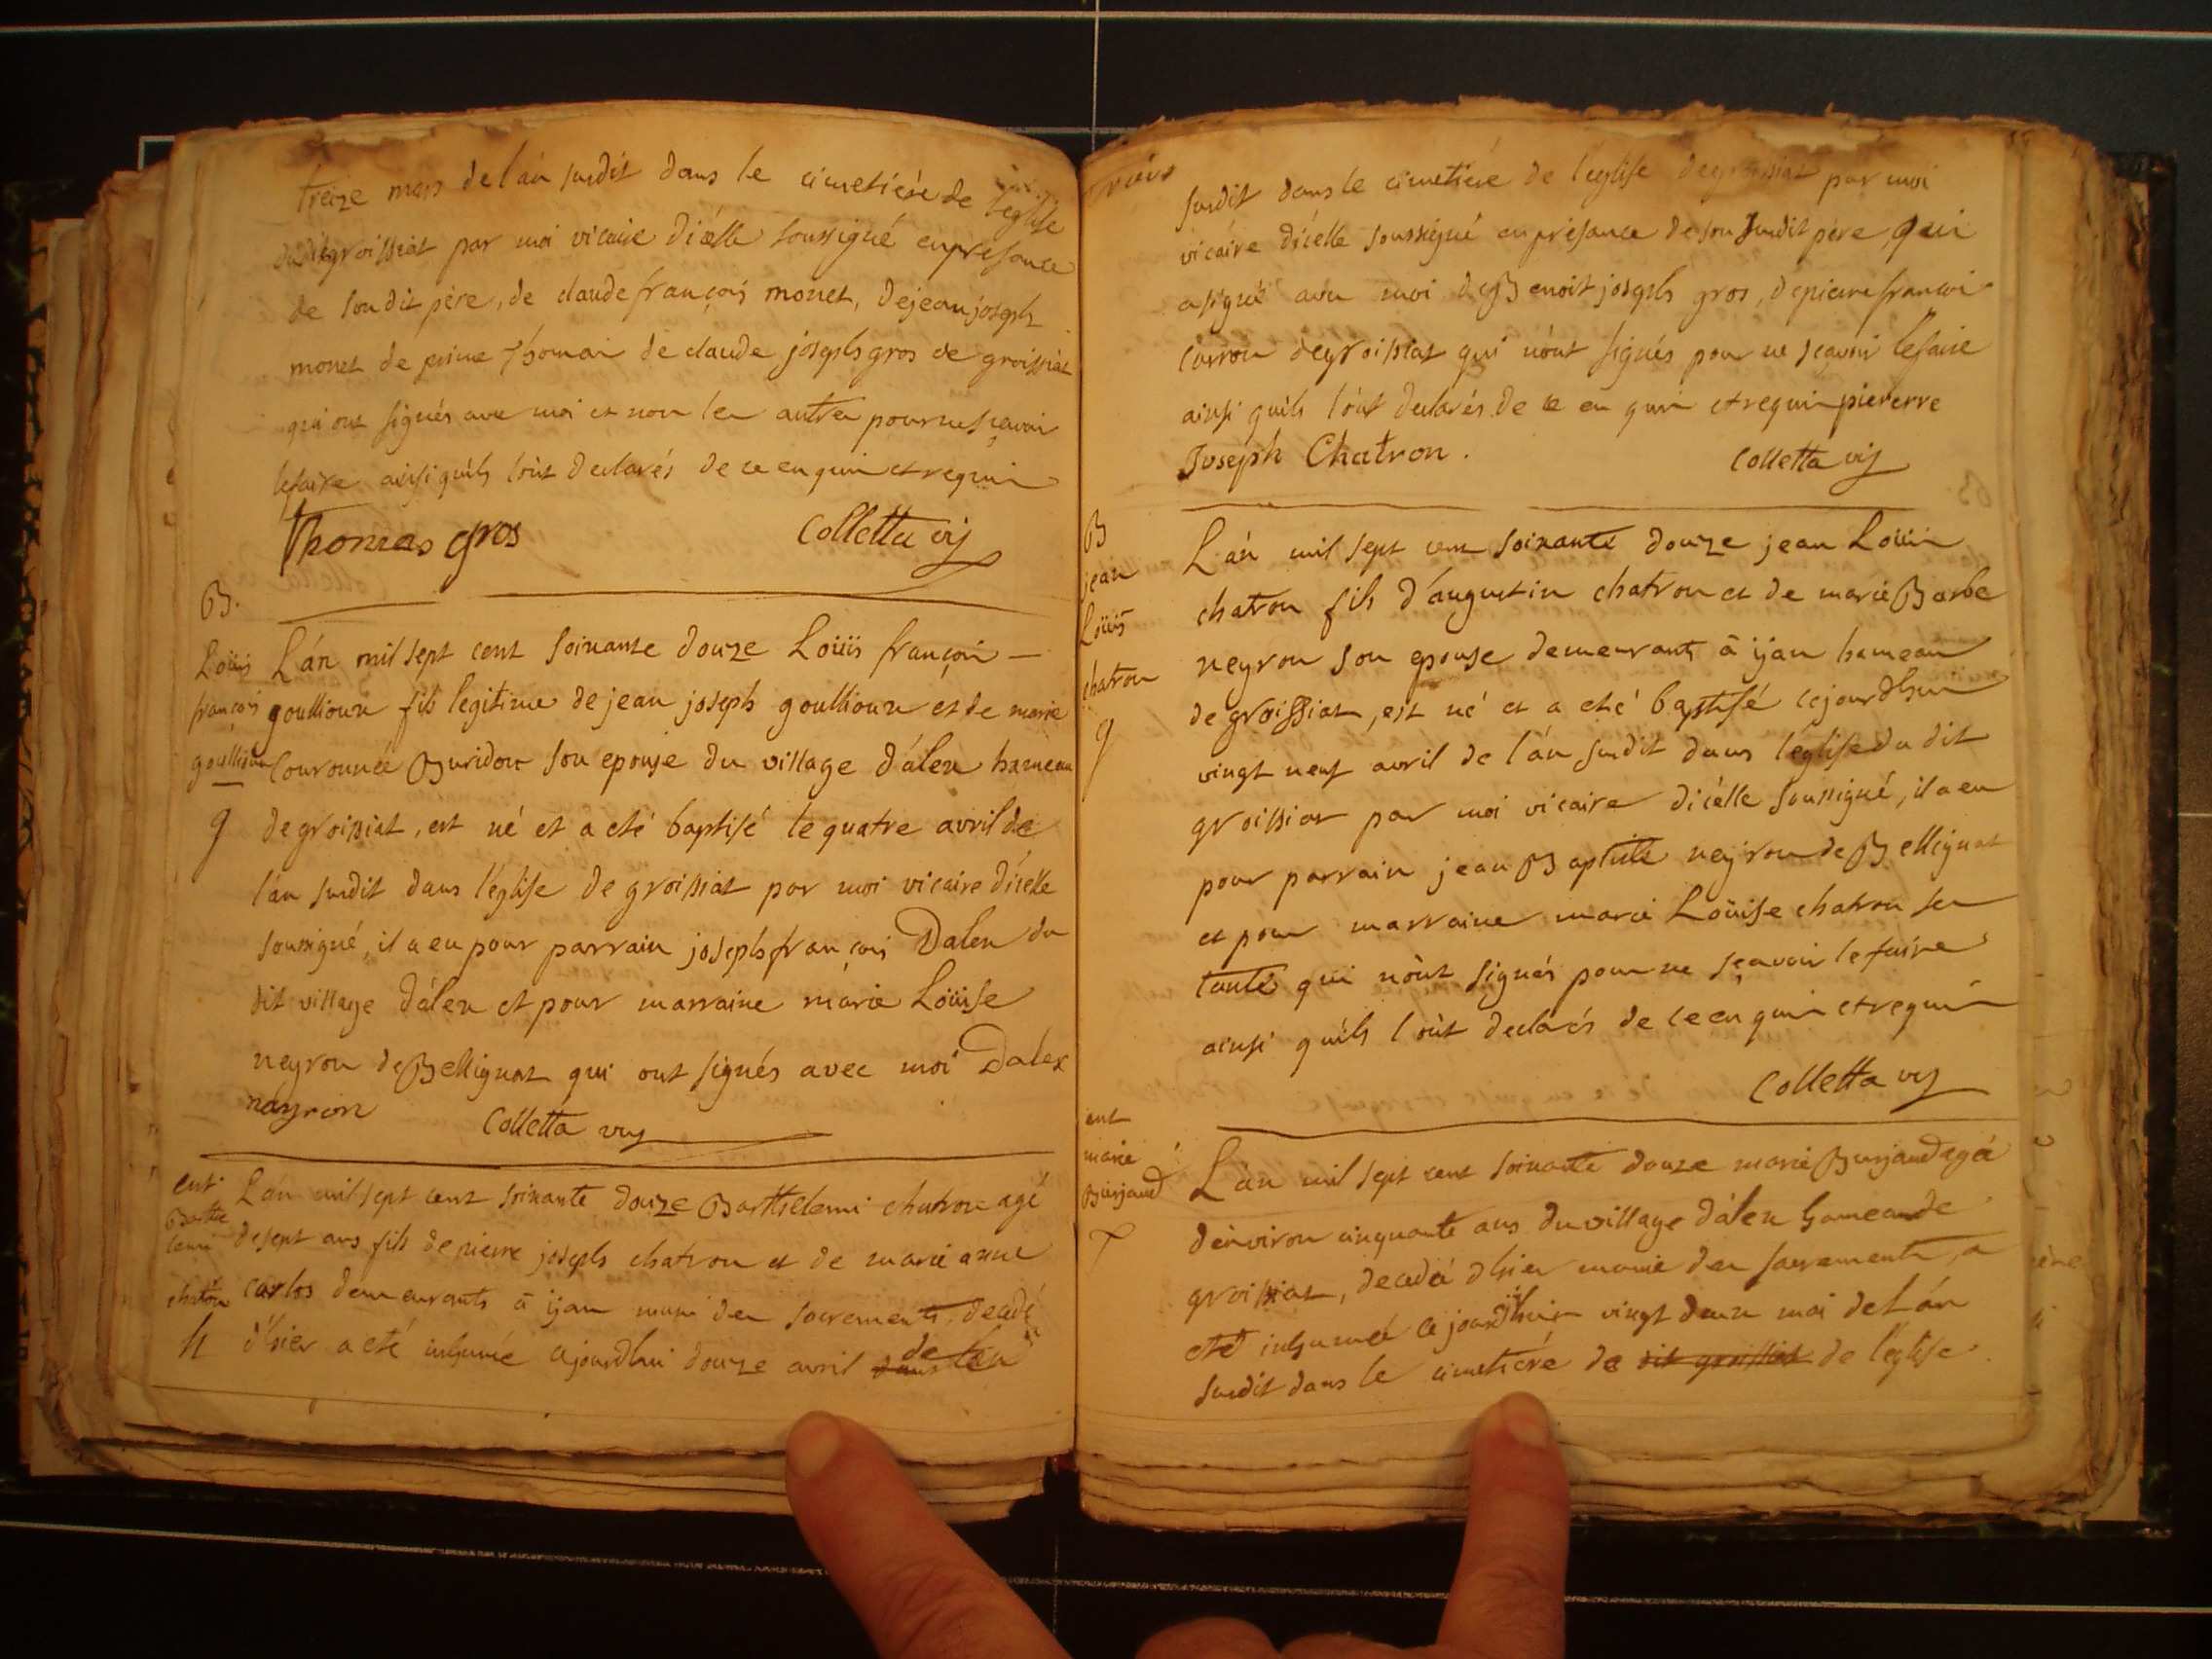 treize mars de lán susdit dans le cimetiére de léglise
de groissiat par moi vicaire dícelle soussigné en presance
de son dit pére, de claude françois monet, de jean joseph
monet de pierre thomas de claude joseph gros de groissiat
qui ont signés avec moi et non les autres pour ne sçavoir
le faire ainsi quils lont declarés de ce enquis et requis
Thomas gros Colletta vic
B.
Loüis
françois
goullioux
g
Lán mil sept cent soixante douze Loüis françois
goullioux fils legitime de jean joseph goullioux et de marie
Couronnée Buridon son epouse du village dálex hameau
de groissiat, est né et a eté baptisé le quatre avril de
lán susdit dans léglise de groissiat par moi vicaire dícelle
soussigné, il a eu pour parrain joseph françois Dalex du
dit village dálex et pour marraine marie Loüise
neyron de Bellignat qui ont signés avec moi Dalex
nayron Colletta vic
ent
Barthe
lemi
chatron
h
Lán mil sept cent soixante douze Barthelemi chatron agé
de sept ans fils de pierre joseph chatron et de marie anne
carlos demeurants à ijan muni des sacrements, decedé
d'hier a eté inhumé ajourdhui douze avril dans de lán
susdit dans le cimetiére de léglise de groissiat par moi
vicaire dícelle soussigné en présance de son susdit pére qui
a signé avec moi de Benoit joseph gros, de pierre françois
carron de groissiat qui nònt signés pour ne sçavoir le faire
ainsi quils lònt declarés de ce enquis et requis piererre
Joseph Chatron. Colletta vic
B
jean
Loüis
chatron
g
Lán mil sept cent soixante douze jean Loüis
chatron fils d'augustin chatron et de marie Barbe
neyron son epouse demeurants à ijan hameau
de groissiat, est né et a eté baptisé cejourdhui
vingt neuf avril de lán susdit dans léglise du dit
groissiat par moi vicaire dicélle soussigné, il a eu
pour parrain jean Baptiste neyron de Bellignat
et pour marraine marie Loüise chatron sa
tante qui nònt signés pour ne sçavoir le faire
ainsi quíls lònt declarés de ce enquis et requis
Colletta vic
ent
marie
Burjaud
Lán mil sept cent soixante douze marie Burjaud agée
dénviron cinquante ans du village dálex hameau de
groissiat, decedée d'hier munie des sacrements, a
eté inhumée ce jourdhui vingt deux mai de lán
susdit dans le cimetiére de dit groissiat de léglise